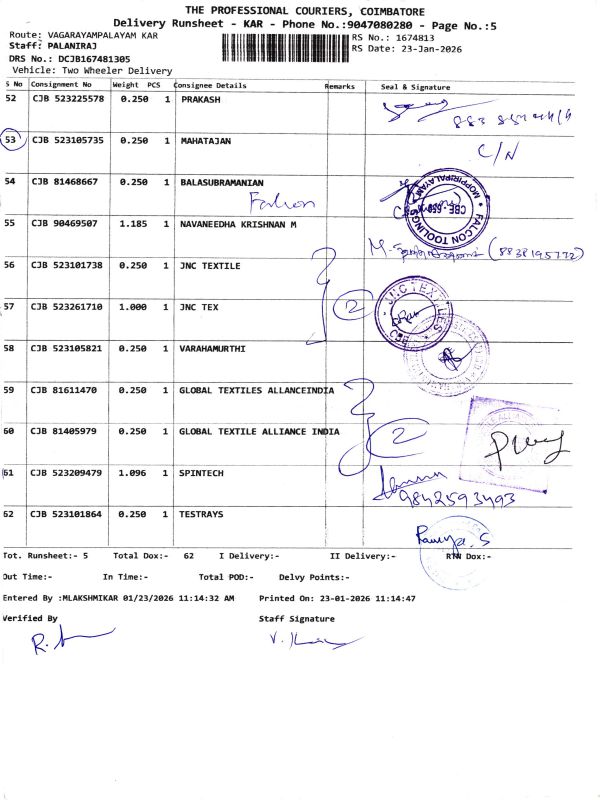 THE PROFESSIONAL COURIERS, COIMBATORE
Delivery Runsheet - KAR - Phone No.:9047080280 - Page No.:5
Route: VAGARAYAMPALAYAM KAR
RS No.: 1674813
Staff: PALANIRAJ
RS Date: 23-Jan-2026
DRS No.: DCJB167481305
Vehicle: Two Wheeler Delivery
S No Consignment No Weight PCS Consignee Details Remarks Seal & Signature
52 CJB 523225578 0.250 1 PRAKASH
53 CJB 523105735 0.250 1 MAHATAJAN C/N
54 CJB 81468667 0.250 1 BALASUBRAMANIAN
Falcon
FALCON TOOLINGS MOPPIRIPALAYAM CBE-659
55 CJB 90469507 1.185 1 NAVANEEDHA KRISHNAN M
(8838195772)
56 CJB 523101738 0.250 1 JNC TEXTILE
57 CJB 523261710 1.000 1 JNC TEX 2 JNC TEXTILES
58 CJB 523105821 0.250 1 VARAHAMURTHI
59 CJB 81611470 0.250 1 GLOBAL TEXTILES ALLANCEINDIA
60 CJB 81405979 0.250 1 GLOBAL TEXTILE ALLIANCE INDIA 2
61 CJB 523209479 1.096 1 SPINTECH
9842593493
62 CJB 523101864 0.250 1 TESTRAYS
Ramya. S
Tot. Runsheet:- 5 Total Dox:- 62 I Delivery:- II Delivery:- RTN Dox:-
Out Time:- In Time:- Total POD:- Delvy Points:-
Entered By :MLAKSHMIKAR 01/23/2026 11:14:32 AM Printed On: 23-01-2026 11:14:47
Verified By Staff Signature